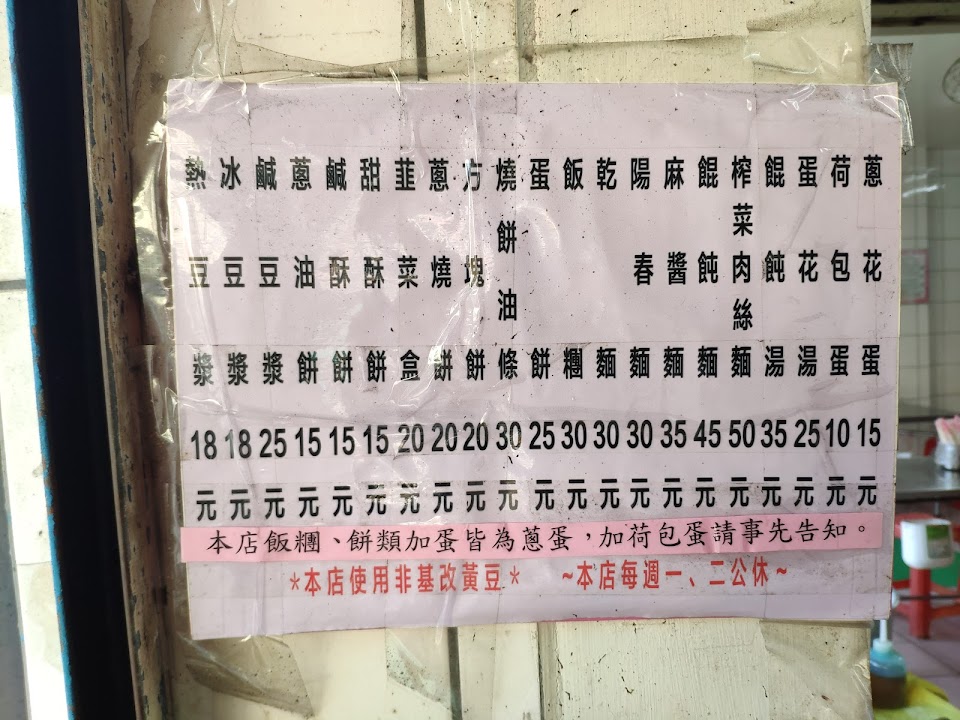 熱豆漿18元
冰豆漿18元
鹹豆漿25元
蔥油餅15元
鹹酥餅15元
甜酥餅15元
韭菜盒20元
蔥燒餅20元
方塊餅20元
燒餅油條30元
蛋餅25元
飯糰30元
乾麵30元
陽春麵30元
麻醬麵35元
餛飩麵45元
榨菜肉絲麵50元
餛飩湯35元
蛋花湯25元
荷包蛋10元
蔥花蛋15元
本店飯糰、餅類加蛋皆為蔥蛋，加荷包蛋請事先告知。
*本店使用非基改黃豆* ~本店每週一、二公休~